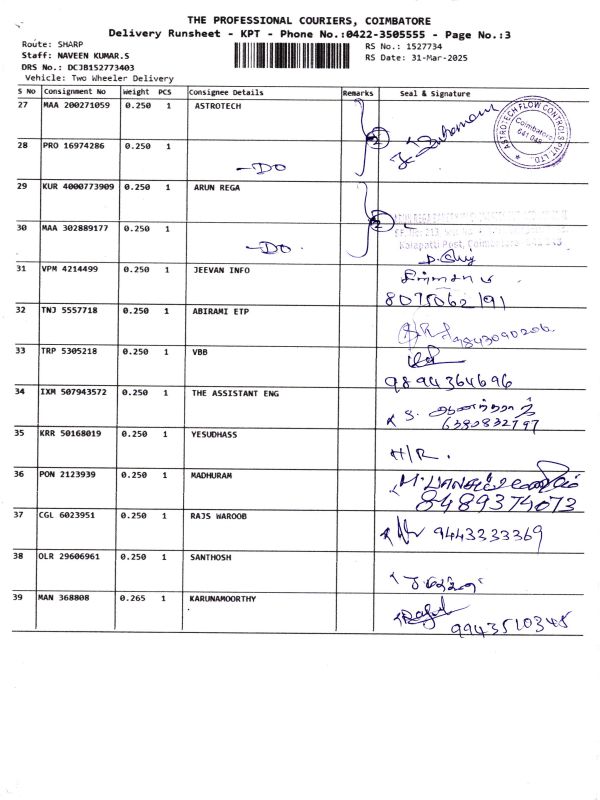 THE PROFESSIONAL COURIERS, COIMBATORE
Delivery Runsheet - KPT - Phone No.:0422-3505555 - Page No.:3
Route: SHARP
Staff: NAVEEN KUMAR.S
DRS No.: DCJB152773403
Vehicle: Two Wheeler Delivery
RS No.: 1527734
RS Date: 31-Mar-2025
S No Consignment No Weight PCS Consignee Details Remarks Seal & Signature
27 MAA 200271059 0.250 1 ASTROTECH
ASTROTECH FLOW CONTROLS PVT LTD.
Coimbatore
641 048
28 PRO 16974286 0.250 1 -DO
2
29 KUR 4000773909 0.250 1 ARUN REGA
30 MAA 302889177 0.250 1 -DO
2
Kalapatti Post,
31 VPM 4214499 0.250 1 JEEVAN INFO
8075062191
32 TNJ 5557718 0.250 1 ABIRAMI ETP
9843090206
33 TRP 5305218 0.250 1 VBB
9894364696
34 IXM 507943572 0.250 1 THE ASSISTANT ENG
6380832797
35 KRR 50168019 0.250 1 YESUDHASS
H/R.
36 PON 2123939 0.250 1 MADHURAM
8489374073
37 CGL 6023951 0.250 1 RAJS WAROOB
9443333369
38 OLR 29606961 0.250 1 SANTHOSH
39 MAN 368808 0.265 1 KARUNAMOORTHY
9943510345